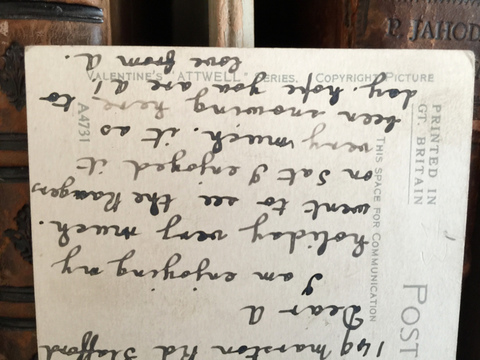 149 Marston Rd Stafford
Dear A
I am enjoying my
holiday very much.
went to see the Rangers
on Sat I enjoyed it
very much. it as
been snowing here to
day, hope you are al,
love from A.
VALENTINE'S "ATTWELL" SERIES. COPYRIGHT PICTURE
A4731
PRINTED IN
GT. BRITAIN
THIS SPACE FOR COMMUNICATION
POST
P. JAHOD